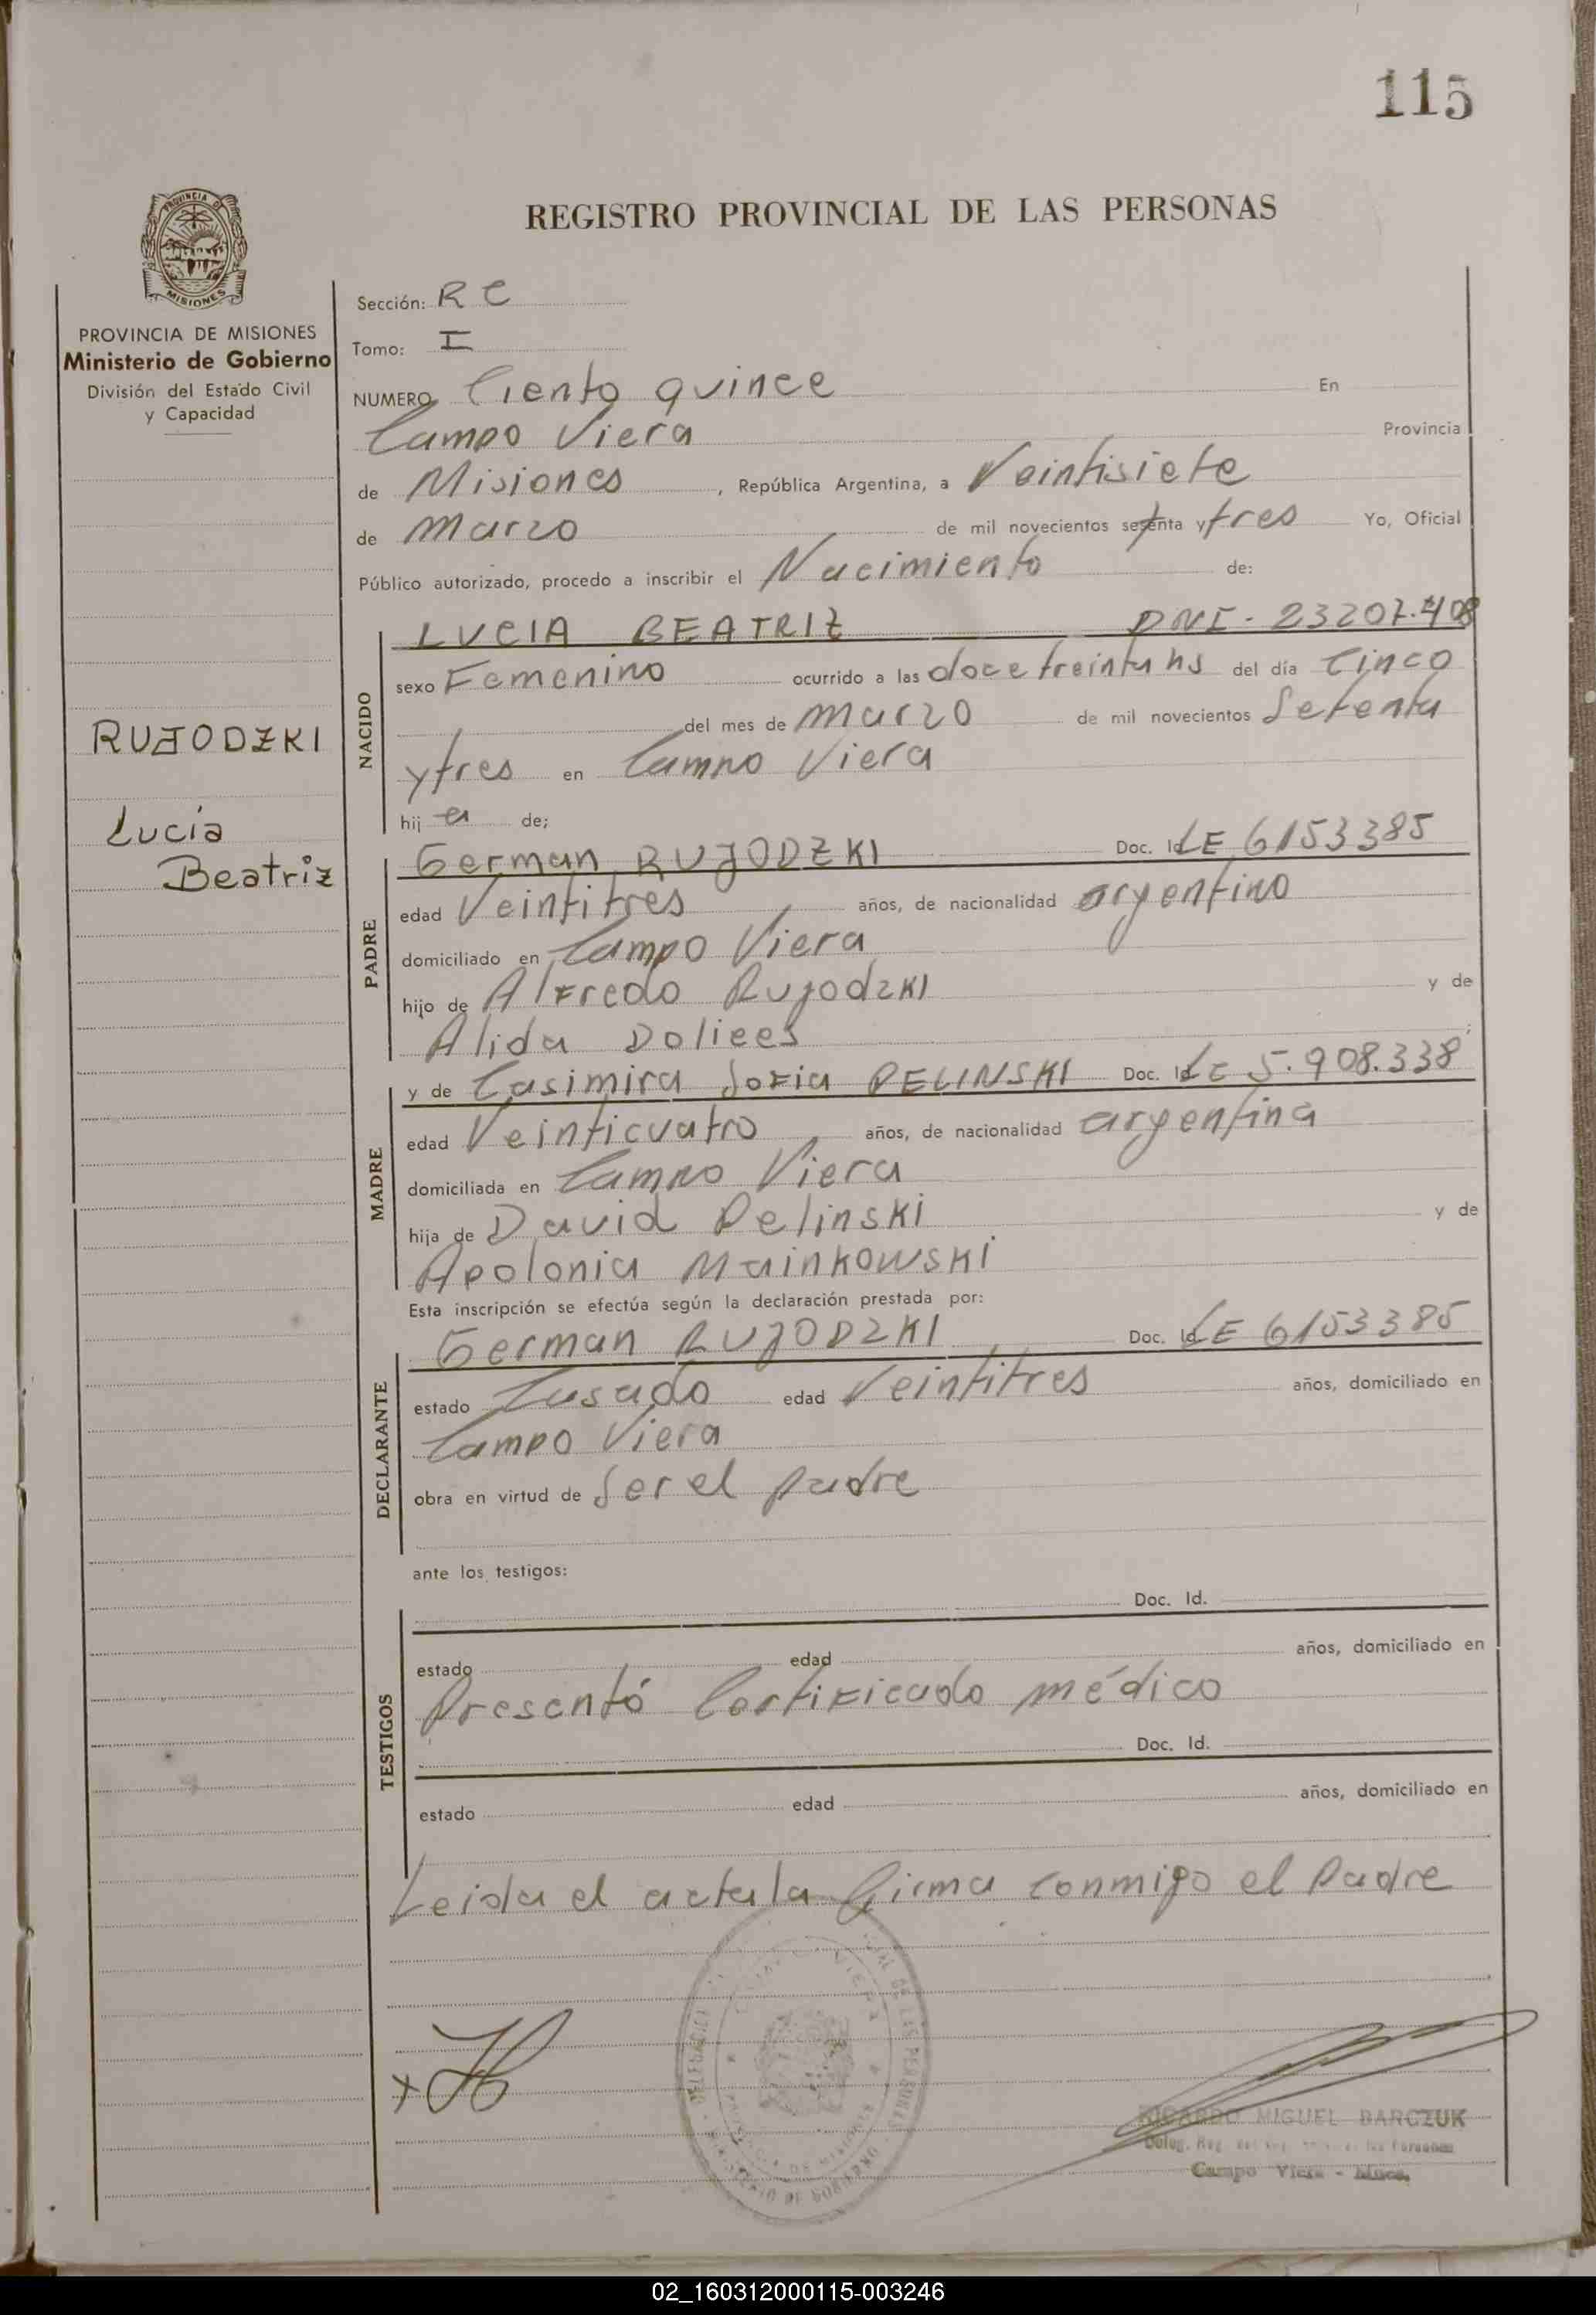 115
REGISTRO PROVINCIAL DE LAS PERSONAS
PROVINCIA DE MISIONES
Ministerio de Gobierno
División del Estado Civil
y Capacidad
RUJODZKI
Lucia
Beatriz
Sección: R C
Tomo: I
NUMERO Ciento quince En
Campo Viera Provincia
de Misiones, República Argentina, a Veintisiete
de marzo de mil novecientos setenta y tres Yo, Oficial
Público autorizado, procedo a inscribir el Nacimiento de:
NACIDO
LUCIA BEATRIZ DNI - 23207.408
sexo Femenino ocurrido a las doce treinta hs del día Cinco
del mes de marzo de mil novecientos Setenta
y tres en Campo Viera
hij a de;
PADRE
German RUJODZKI Doc. Id. LE 6153385
edad Veintitres años, de nacionalidad argentino
domiciliado en Campo Viera
hijo de Alfredo Rujodzki y de
Alida Doliees
MADRE
y de Casimira Sofia PELINSKI Doc. Id. LC 5.908.338
edad Veinticuatro años, de nacionalidad argentina
domiciliada en Campo Viera
hija de David Pelinski y de
Apolonia Mainkowski
Esta inscripción se efectúa según la declaración prestada por:
DECLARANTE
German RUJODZKI Doc. Id. LE 6153385
estado Casado edad Veintitres años, domiciliado en
Campo Viera
obra en virtud de Ser el padre
ante los testigos:
TESTIGOS
Doc. Id.
estado edad años, domiciliado en
Presentó Certificado médico
Doc. Id.
estado edad años, domiciliado en
Leida el acta la firma conmigo el Padre
RICARDO MIGUEL BARCZUK
Campo Viera - Mnes.
02_160312000115-003246